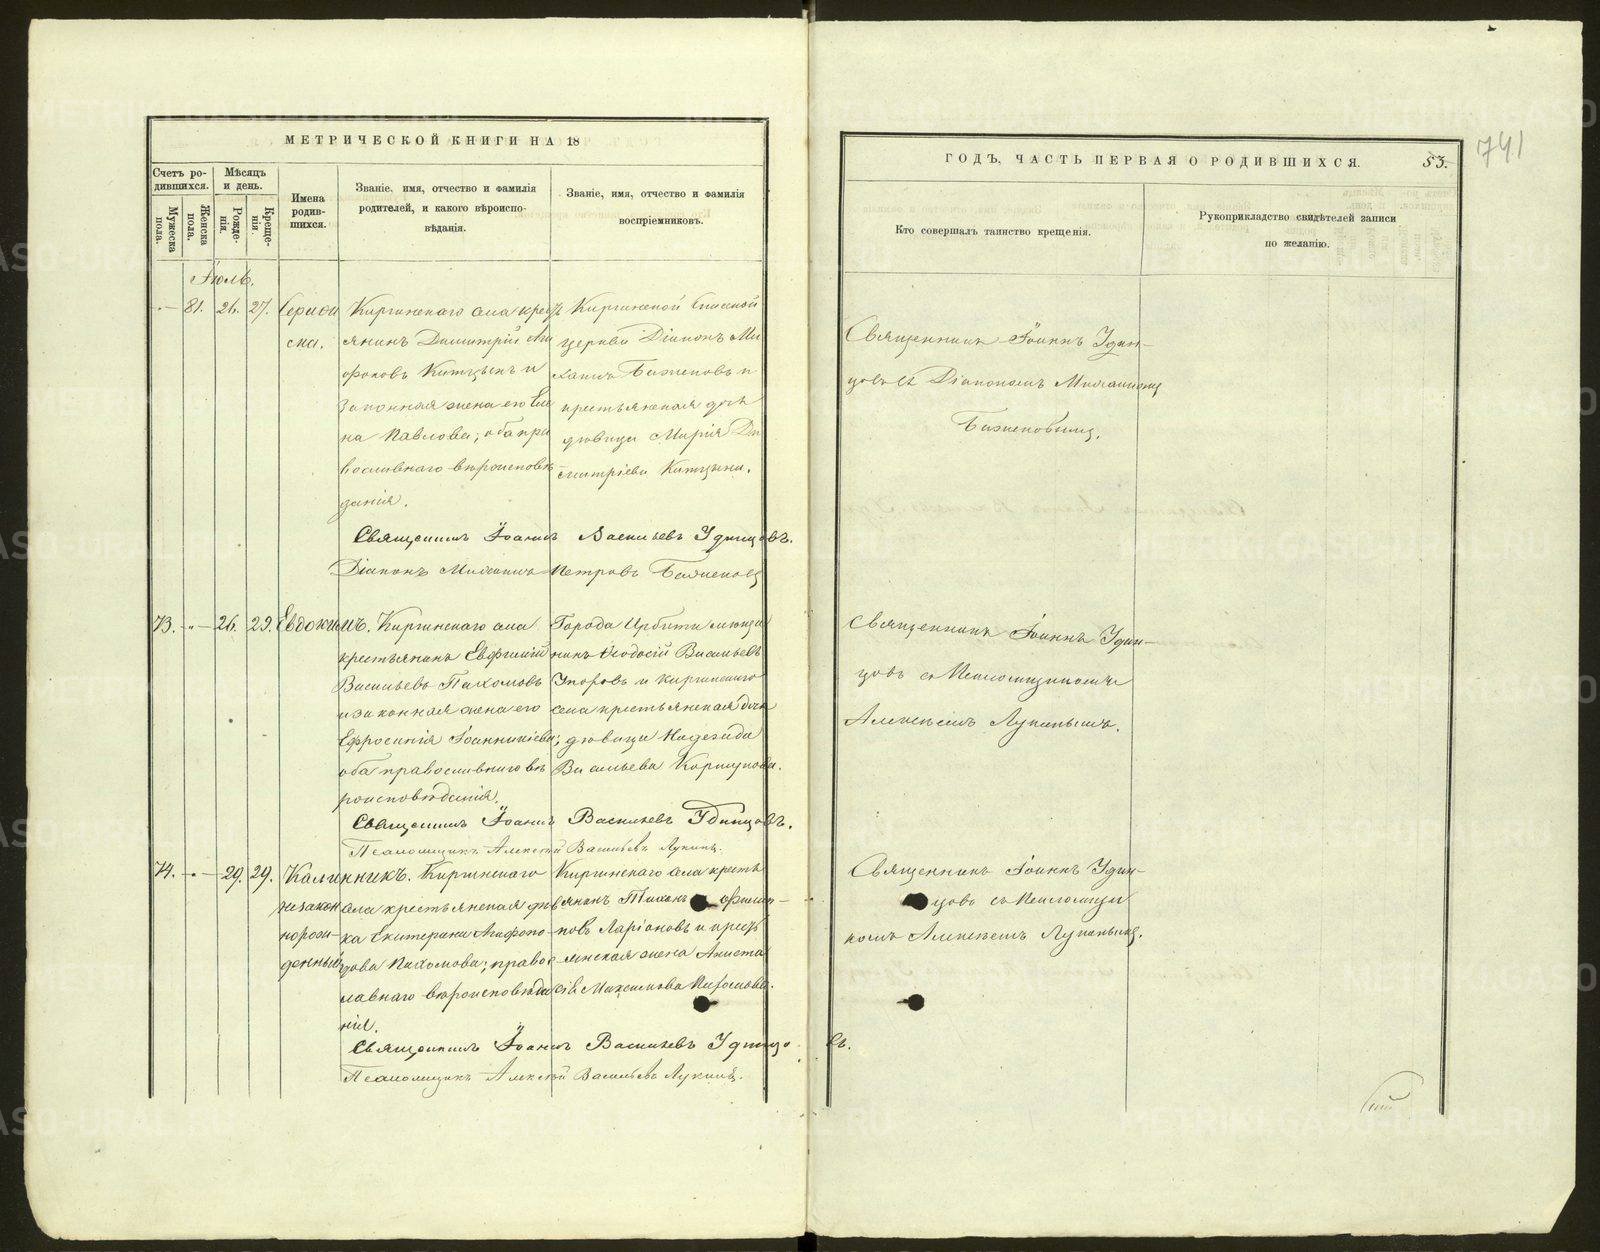 МЕТРИЧЕСКОЙ КНИГИ НА 18
Счетъ ро-
дившихся.
Мѣсяцъ
и день.
Мужеска
пола.
Женска
пола.
Рожде-
нія.
Креще-
нія.
Имена
родив-
шихся.
Званіе, имя, отчество и фамилія
родителей, и какого вѣроиспо-
вѣданія.
Званіе, имя, отчество и фамилія
воспріемниковъ.
Іюль.
81. 26. 27.
Киргинскаго села крестъ
янинъ Димитрій
и
законная жена его Еле
на Павлова; оба пра
вославнаго вѣроисповѣ
данія.
Киргинской Спасской
церкви Діаконъ Ми
хаилъ Баженовъ и
крестьянская дочь
дѣвица Марія Ди
митріева
Священникъ Іоаннъ Васильевъ Удинцовъ.
Діаконъ Михаилъ Петровъ Баженовъ
73. „ 26. 29. Евдокимъ. Киргинскаго села
крестьянинъ Евфимій
Васильевъ Пахомовъ
и законная жена его
Ефросинія Іоанникіева;
оба православнаго вѣ
роисповѣданія.
Города Ирбити мѣща
нинъ Ѳеодосій Васильевъ
и Киргинскаго
села крестьянская дочь
дѣвица Надежда
Васильева
Священникъ Іоаннъ Васильевъ Удинцовъ.
Псаломщикъ Алексѣй Васильевъ Лукинъ.
74. „ 29. 29. Калинникъ.
незакон
норож-
денный
Киргинскаго
села крестьянская дѣв
ка Екатерина Агафоно-
ва Пахомова; правос
лавнаго вѣроисповѣда
нія.
Киргинскаго села кресть
янинъ Тихонъ
Ларіоновъ и крест
янская жена Аниста
сія Максимова Пахомова.
Священникъ Іоаннъ Васильевъ Удинцовъ.
Псаломщикъ Алексѣй Васильевъ Лукинъ.
ГОДЪ, ЧАСТЬ ПЕРВАЯ О РОДИВШИХСЯ.
53.
741
Кто совершалъ таинство крещенія.
Рукоприкладство свидѣтелей записи
по желанію.
Священникъ Іоаннъ Удин-
цовъ съ Діакономъ Михаиломъ
Баженовымъ.
Священникъ Іоаннъ Удин-
цовъ съ Псаломщикомъ
Алексѣемъ Лукинымъ.
Священникъ Іоаннъ Удин-
цовъ съ Псаломщи
комъ Алексѣемъ Лукинымъ.
METRIKI.GASO-URAL.RU